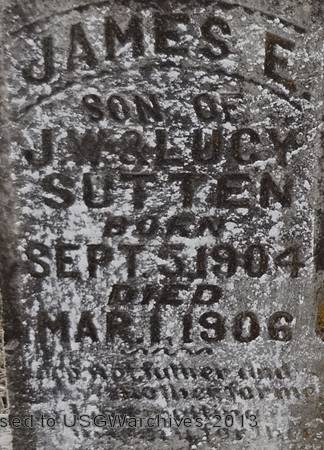 JAMES E.
SON OF
J.W. & LUCY
SUTTEN
BORN
SEPT. 5, 1904
DIED
MAR. 1, 1906
not father and
mother for me
sed to USGWarchives 2013